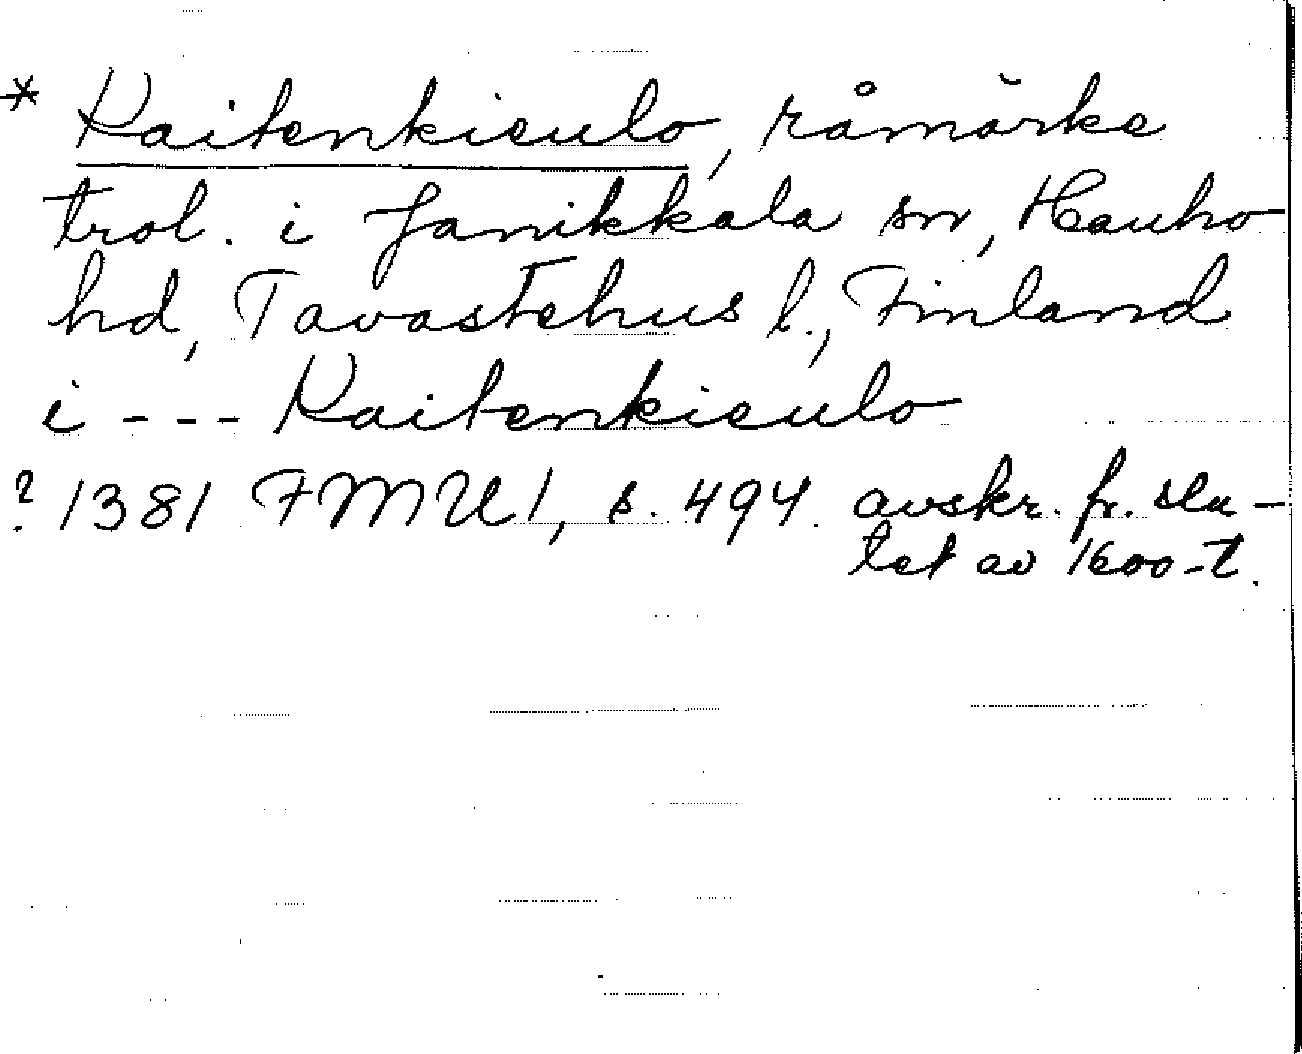 * Raitenkieulo, råmärke
trol. i Janikkala sn, Hauho
hd, Tavastehus l., Finland
i --- Raitenkieulo
? 1381 FMU 1, s. 494. avskr. fr. slu-
tet av 1600-t.